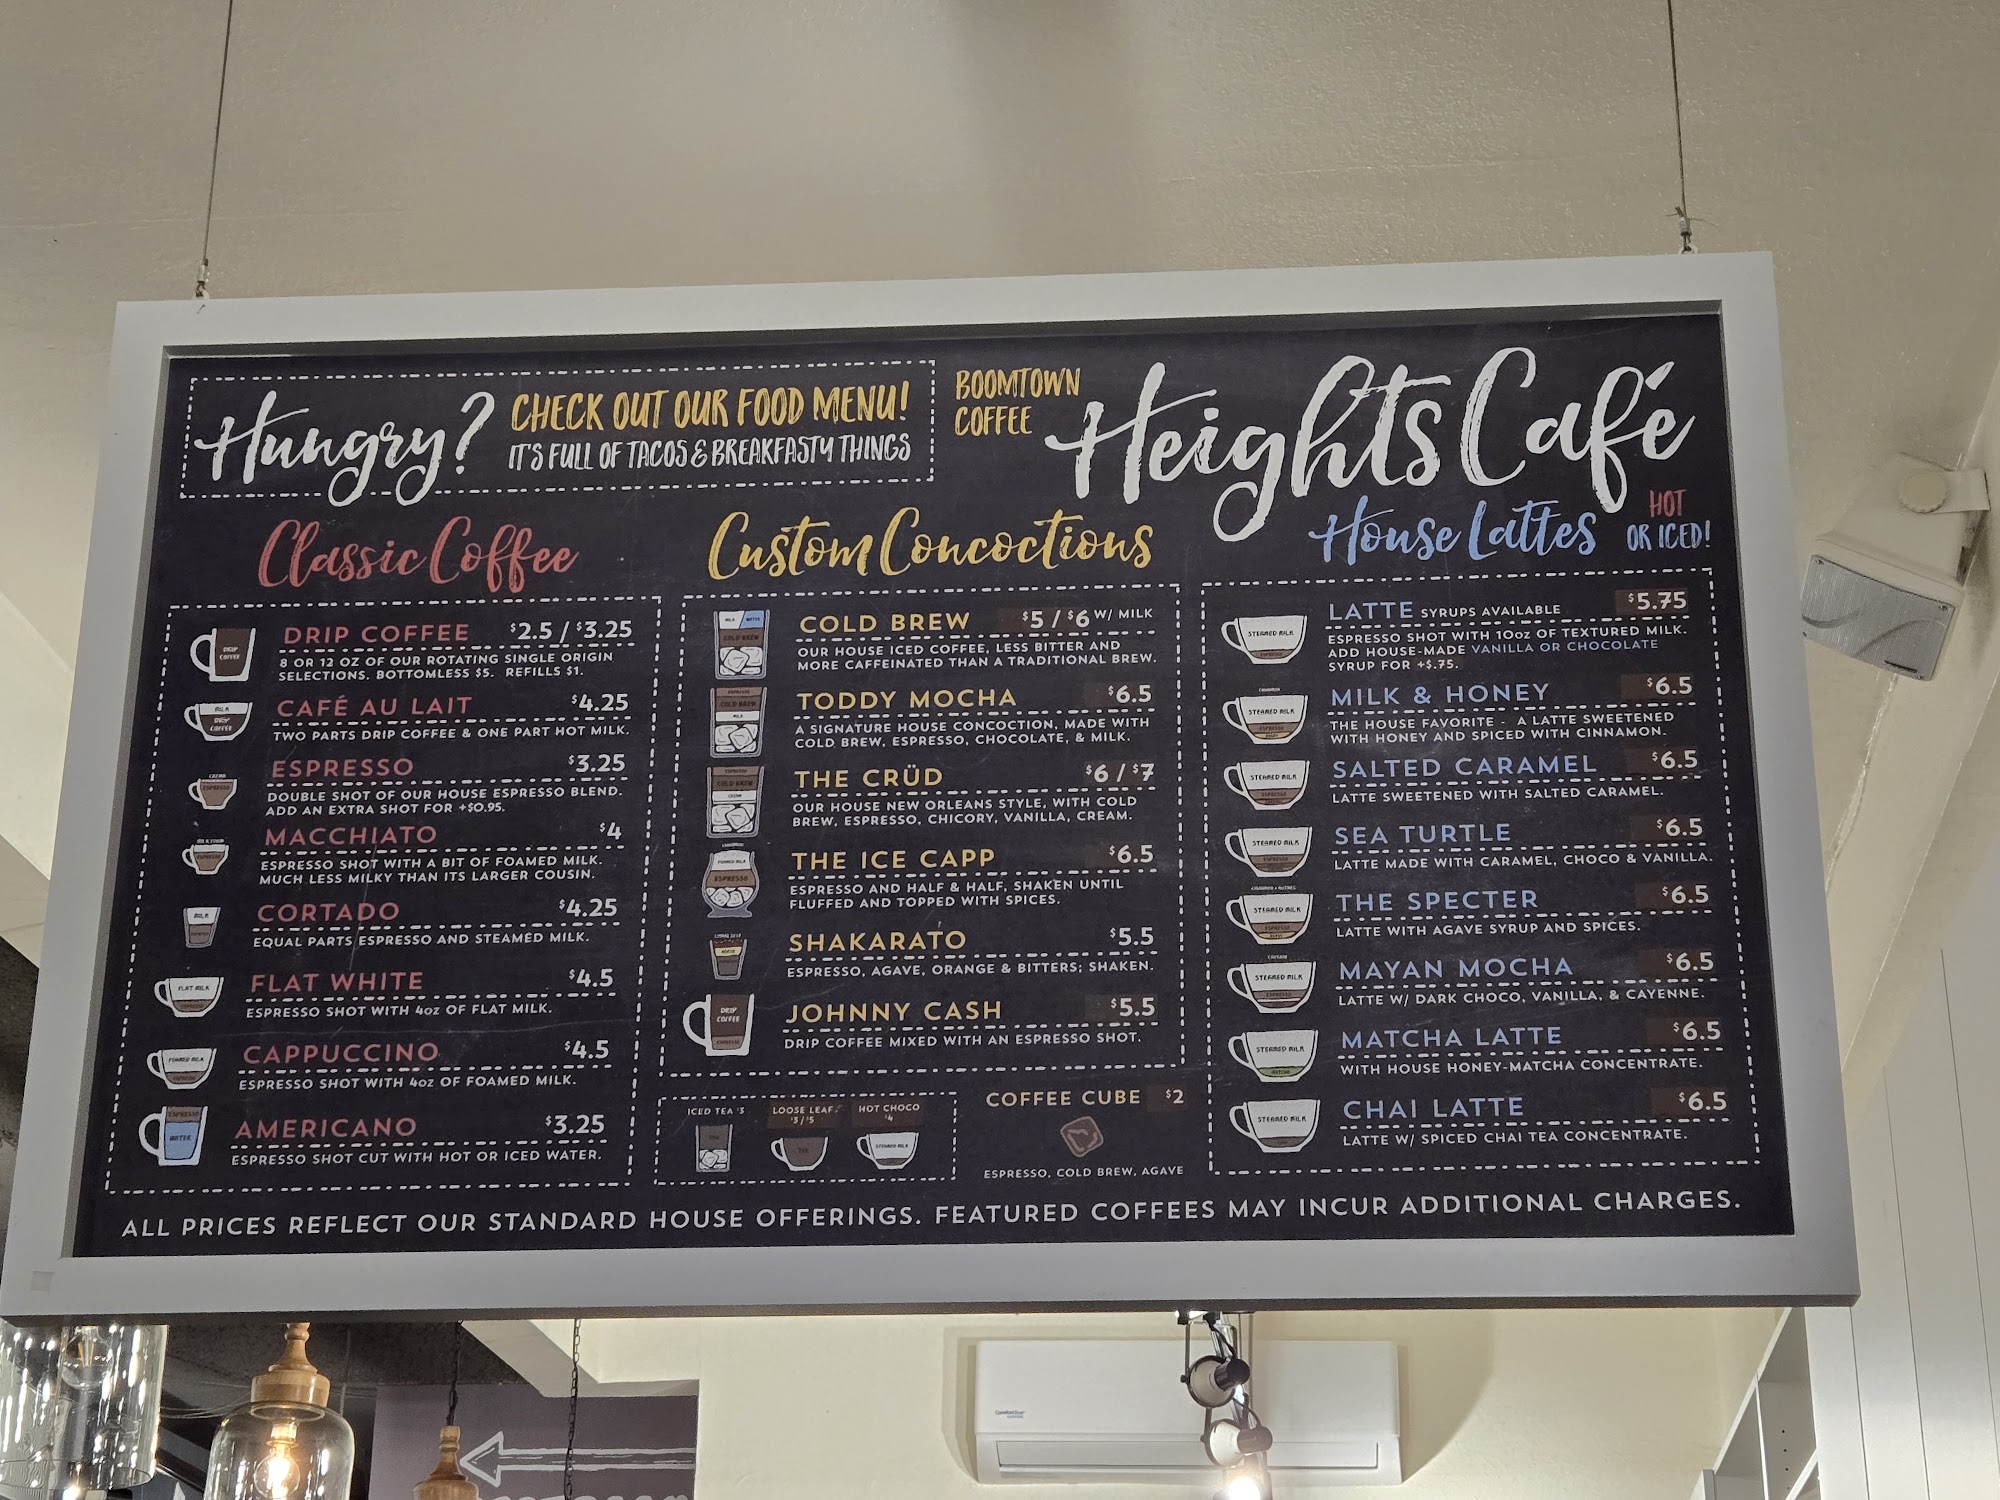 Hungry?
CHECK OUT OUR FOOD MENU!
IT'S FULL OF TACOS & BREAKFASTY THINGS
BOOMTOWN
COFFEE
Heights Café
Classic Coffee
DRIP COFFEE $2.5 / $3.25
8 OR 12 OZ OF OUR ROTATING SINGLE ORIGIN
SELECTIONS. BOTTOMLESS $5. REFILLS $1.
DRIP
COFFEE
CAFÉ AU LAIT $4.25
TWO PARTS DRIP COFFEE & ONE PART HOT MILK.
MILK
DRIP
COFFEE
ESPRESSO $3.25
DOUBLE SHOT OF OUR HOUSE ESPRESSO BLEND.
ADD AN EXTRA SHOT FOR +$0.95.
CREMA
ESPRESSO
MACCHIATO $4
ESPRESSO SHOT WITH A BIT OF FOAMED MILK.
MUCH LESS MILKY THAN ITS LARGER COUSIN.
MILK FOAM
ESPRESSO
CORTADO $4.25
EQUAL PARTS ESPRESSO AND STEAMED MILK.
MILK
ESPRESSO
FLAT WHITE $4.5
ESPRESSO SHOT WITH 4oz OF FLAT MILK.
FLAT MILK
CAPPUCCINO $4.5
ESPRESSO SHOT WITH 4oz OF FOAMED MILK.
FOAMED MILK
ESPRESSO
AMERICANO $3.25
ESPRESSO SHOT CUT WITH HOT OR ICED WATER.
ESPRESSO
WATER
Custom Concoctions
COLD BREW $5 / $6 W/ MILK
OUR HOUSE ICED COFFEE, LESS BITTER AND
MORE CAFFEINATED THAN A TRADITIONAL BREW.
MILK WATER
COLD BREW
TODDY MOCHA $6.5
A SIGNATURE HOUSE CONCOCTION, MADE WITH
COLD BREW, ESPRESSO, CHOCOLATE, & MILK.
ESPRESSO
COLD BREW
MILK
THE CRÜD $6 / $7
OUR HOUSE NEW ORLEANS STYLE, WITH COLD
BREW, ESPRESSO, CHICORY, VANILLA, CREAM.
ESPRESSO
COLD BREW
CREAM
THE ICE CAPP $6.5
ESPRESSO AND HALF & HALF, SHAKEN UNTIL
FLUFFED AND TOPPED WITH SPICES.
FOAMED MILK
ESPRESSO
SHAKARATO $5.5
ESPRESSO, AGAVE, ORANGE & BITTERS; SHAKEN.
JOHNNY CASH $5.5
DRIP COFFEE MIXED WITH AN ESPRESSO SHOT.
DRIP
COFFEE
ESPRESSO
ICED TEA $3
TEA
LOOSE LEAF
$3 / $5
TEA
HOT CHOCO
$4
STEAMED MILK
COFFEE CUBE $2
ESPRESSO, COLD BREW, AGAVE
House Lattes
HOT
OR ICED!
LATTE SYRUPS AVAILABLE $5.75
ESPRESSO SHOT WITH 10oz OF TEXTURED MILK.
ADD HOUSE-MADE VANILLA OR CHOCOLATE
SYRUP FOR +$.75.
STEAMED MILK
ESPRESSO
MILK & HONEY $6.5
THE HOUSE FAVORITE - A LATTE SWEETENED
WITH HONEY AND SPICED WITH CINNAMON.
STEAMED MILK
ESPRESSO
SALTED CARAMEL $6.5
LATTE SWEETENED WITH SALTED CARAMEL.
STEAMED MILK
ESPRESSO
SEA TURTLE $6.5
LATTE MADE WITH CARAMEL, CHOCO & VANILLA.
STEAMED MILK
ESPRESSO
THE SPECTER $6.5
LATTE WITH AGAVE SYRUP AND SPICES.
STEAMED MILK
ESPRESSO
MAYAN MOCHA $6.5
LATTE W/ DARK CHOCO, VANILLA, & CAYENNE.
STEAMED MILK
ESPRESSO
MATCHA LATTE $6.5
WITH HOUSE HONEY-MATCHA CONCENTRATE.
STEAMED MILK
MATCHA
CHAI LATTE $6.5
LATTE W/ SPICED CHAI TEA CONCENTRATE.
STEAMED MILK
ALL PRICES REFLECT OUR STANDARD HOUSE OFFERINGS. FEATURED COFFEES MAY INCUR ADDITIONAL CHARGES.